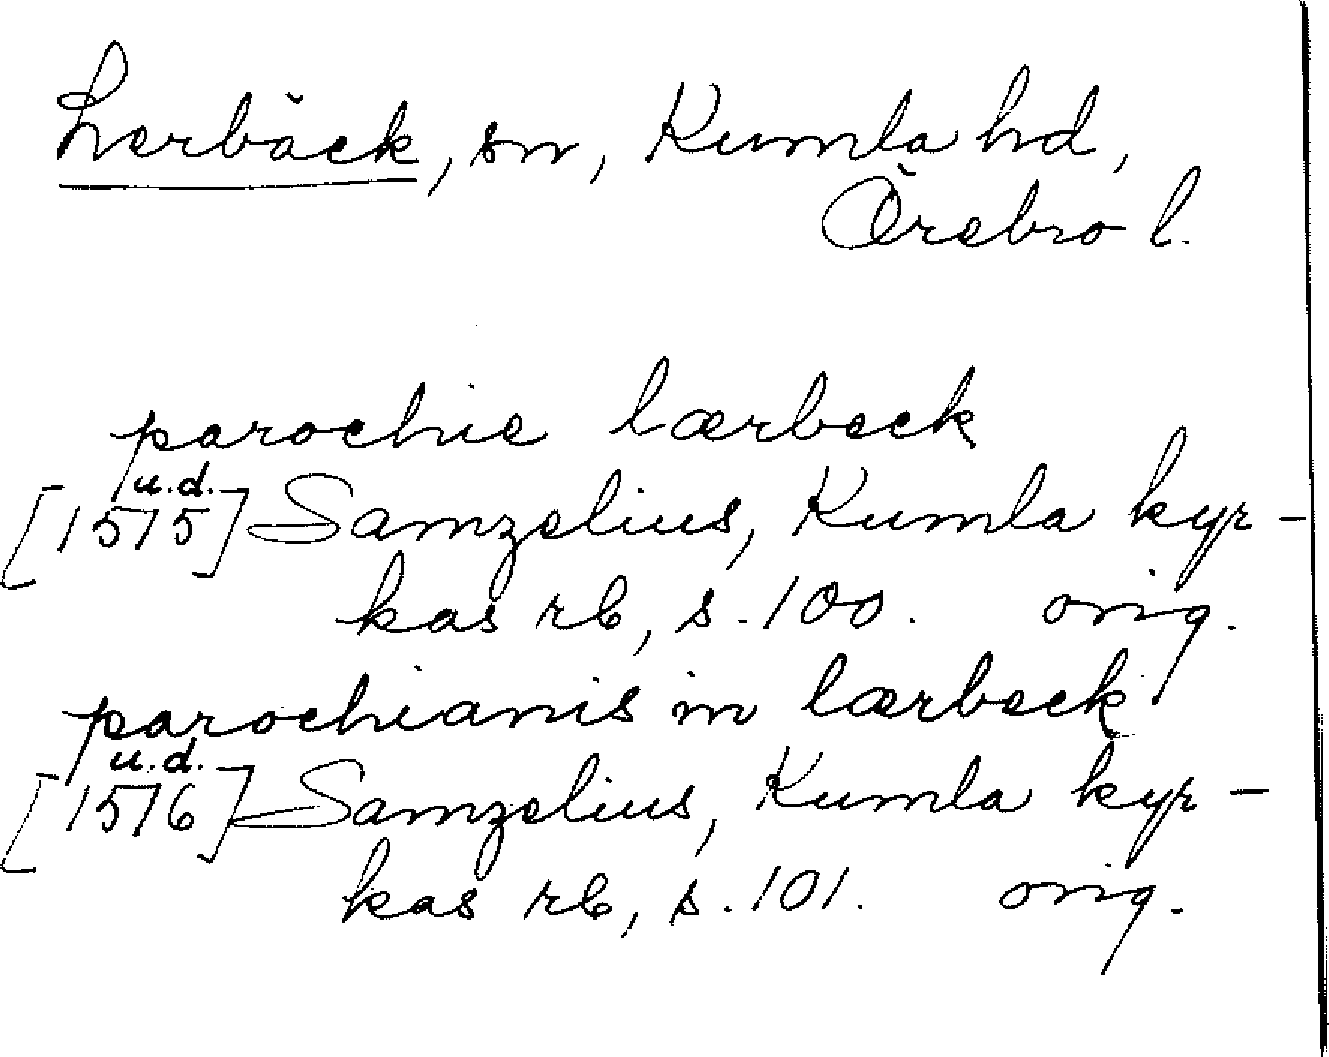 Lerbäck, sn, Kumla hd,
Örebro l.
parochie lærbeck
u.d.
[1575] Samzelius, Kumla kyr-
kas rb, s. 100. orig.
parochianis in lærbeck
u.d.
[1576] Samzelius, Kumla kyr-
kas rb, s. 101. orig.